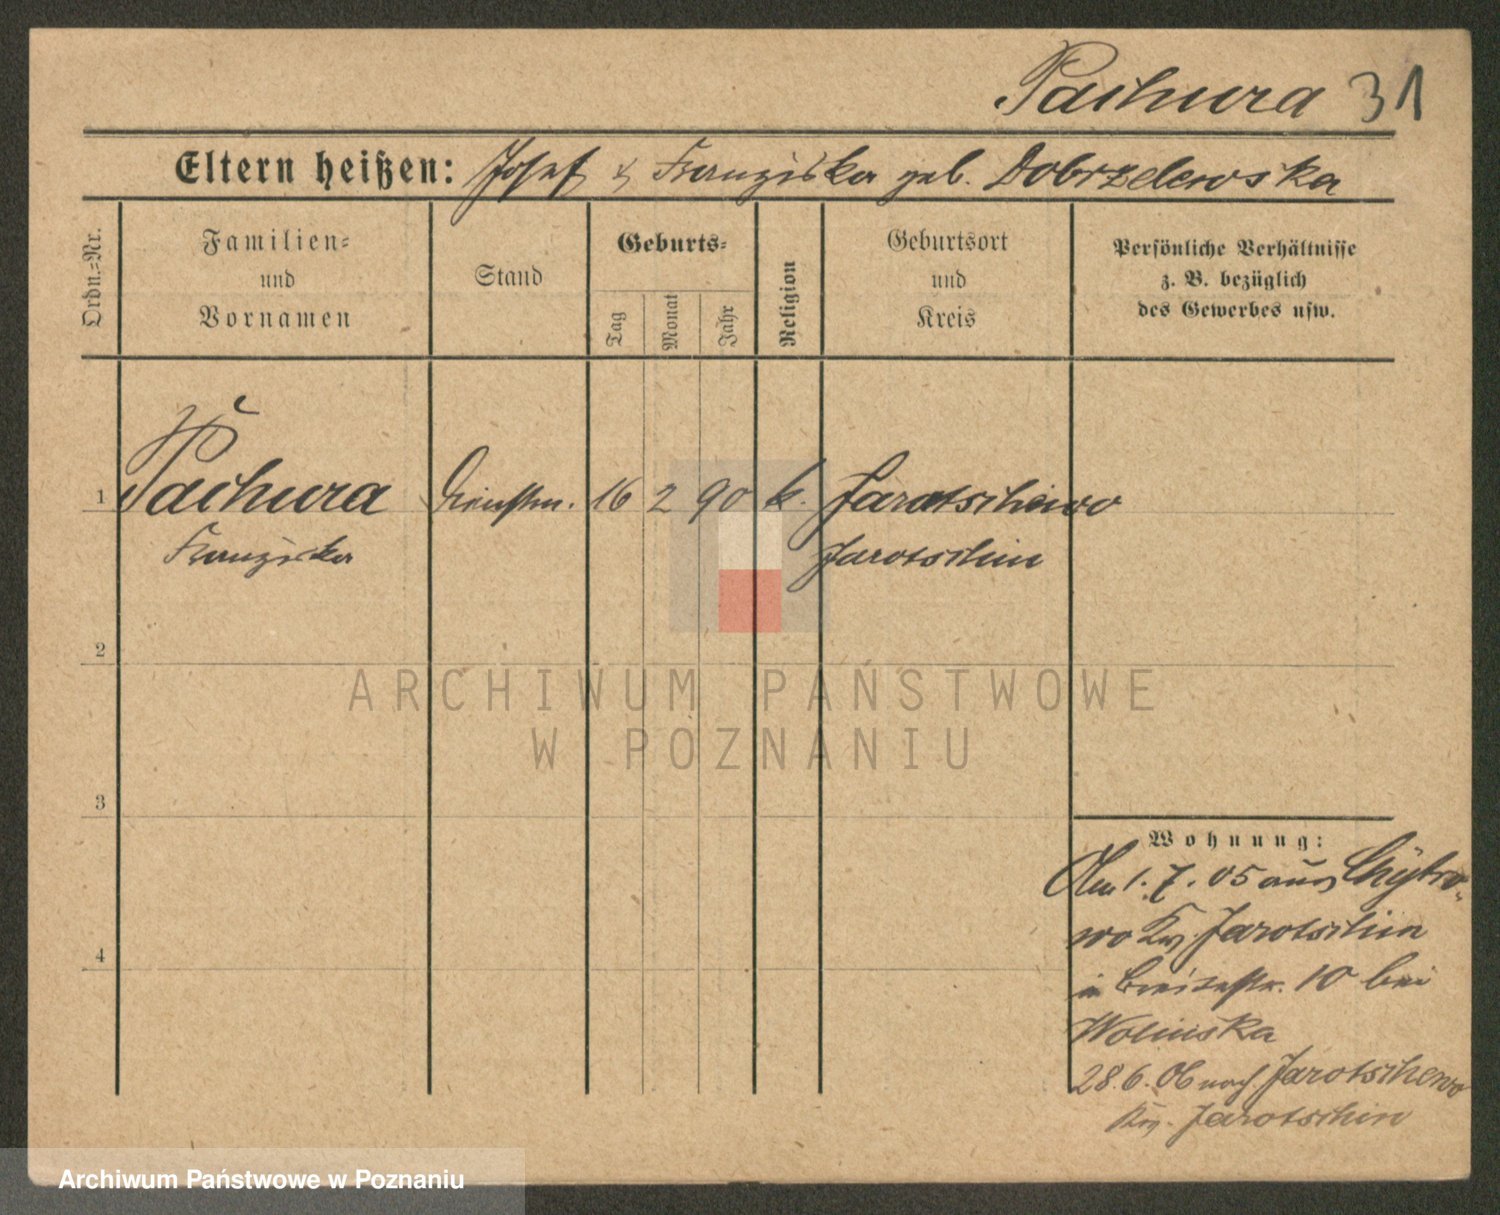 Pachura 31
Eltern heißen: Josef & Franziska geb. Dobrzelewska
Ordn.-Nr.
Familien-
und
Vornamen
Stand
Geburts-
Tag
Monat
Jahr
Religion
Geburtsort
und
Kreis
Persönliche Verhältnisse
z. B. bezüglich
des Gewerbes usw.
1 Pachura Dienstm. 16 2 90 k. Jarotschewo
Franziska Jarotschin
2
ARCHIWUM PAŃSTWOWE
W POZNANIU
3
Wohnung:
Am 1. 7. 05 aus
wo Krs. Jarotschin
in Breitestr. 10 bei
Wolinska
4
28. 6. 06 nach Jarotschewo
Krs. Jarotschin
Archiwum Państwowe w Poznaniu